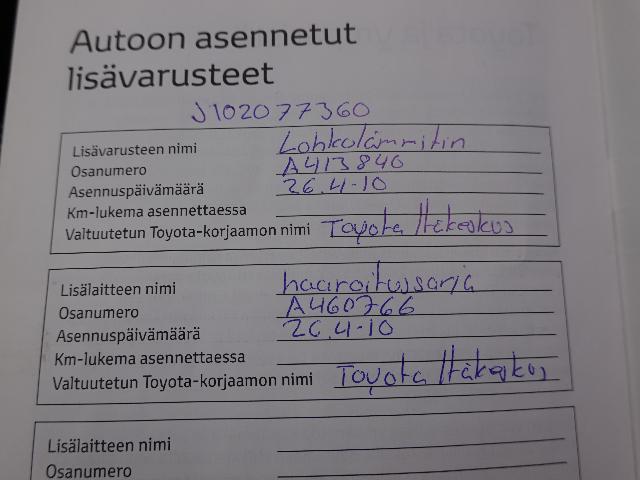 Autoon asennetut
lisävarusteet
J102077360
Lisävarusteen nimi Lohkolämmitin
Osanumero A413840
Asennuspäivämäärä 26.4-10
Km-lukema asennettaessa
Valtuutetun Toyota-korjaamon nimi Toyota Itäkeskus
Lisälaitteen nimi haaroitussarja
Osanumero A460766
Asennuspäivämäärä 26.4-10
Km-lukema asennettaessa
Valtuutetun Toyota-korjaamon nimi Toyota Itäkeskus
Lisälaitteen nimi
Osanumero